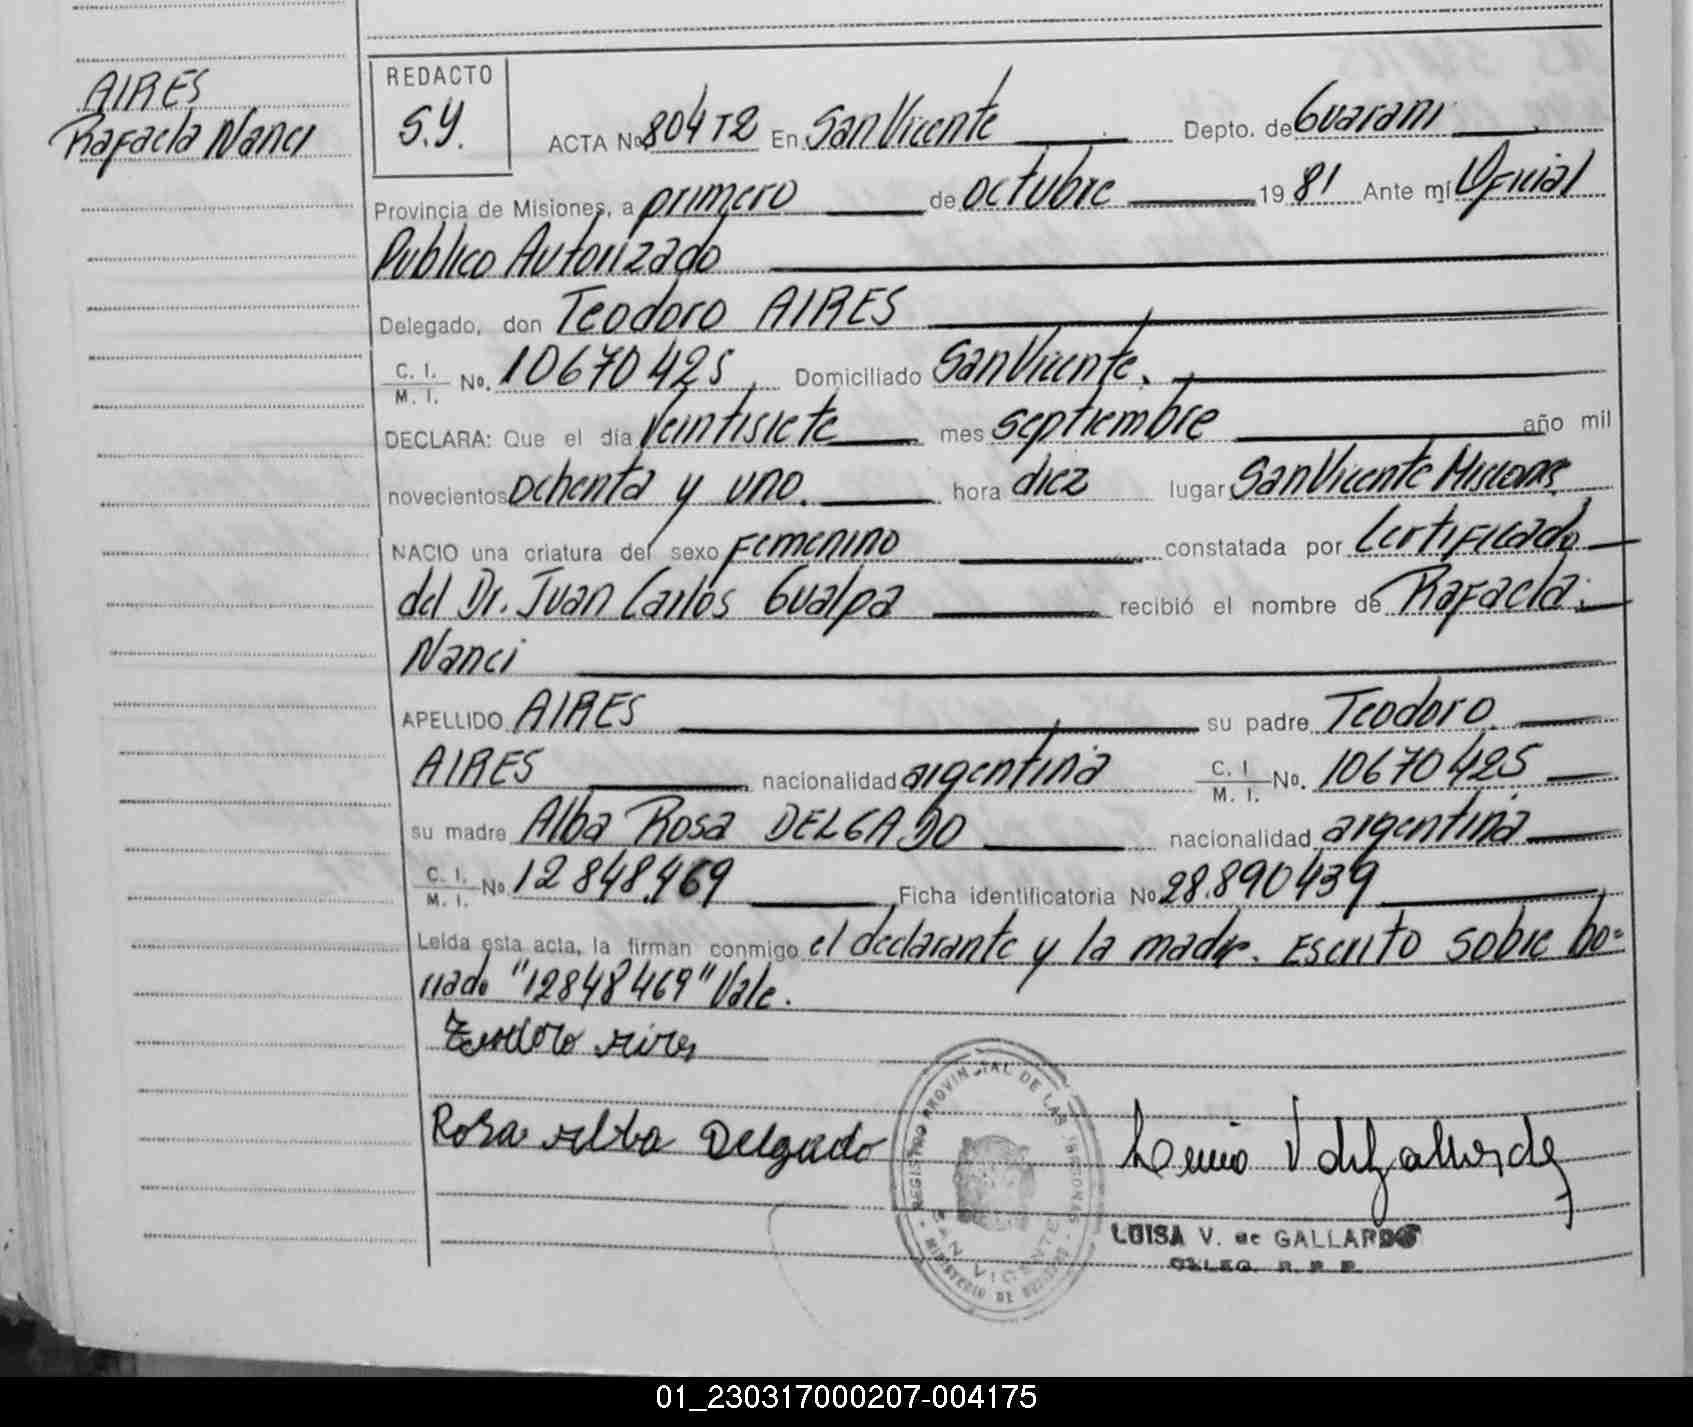 AIRES
Rafaela Nanci
REDACTO
S.Y.
ACTA Nº 804 T2 En San Vicente Depto. de Guaraní
Provincia de Misiones, a primero de octubre 1981 Ante mí Oficial
Publico Autorizado
Delegado, don Teodoro AIRES
C. I. / M. I. Nº. 10670425, Domiciliado San Vicente.
DECLARA: Que el día veintisiete mes septiembre año mil
novecientos ochenta y uno. hora diez lugar San Vicente Misiones
NACIO una criatura del sexo femenino constatada por Certificado
del Dr. Juan Carlos Gualpa recibió el nombre de Rafaela
Nanci
APELLIDO AIRES su padre Teodoro
AIRES nacionalidad argentina C. I / M. I. Nº. 10670425
su madre Alba Rosa DELGADO nacionalidad argentina
C. I. / M. I. Nº 12848.469 Ficha identificatoria Nº 28.890439
Leída esta acta, la firman conmigo el declarante y la madre. Escrito sobre bo=
rrado "12848469" Vale.
Teodoro Aires
Rosa Alba Delgado
REGISTRO PROVINCIAL DE LAS PERSONAS
SAN VICENTE
MINISTERIO DE GOBIERNO
LUISA V. de GALLARDO
DELEG. R. P. P.
01_230317000207-004175